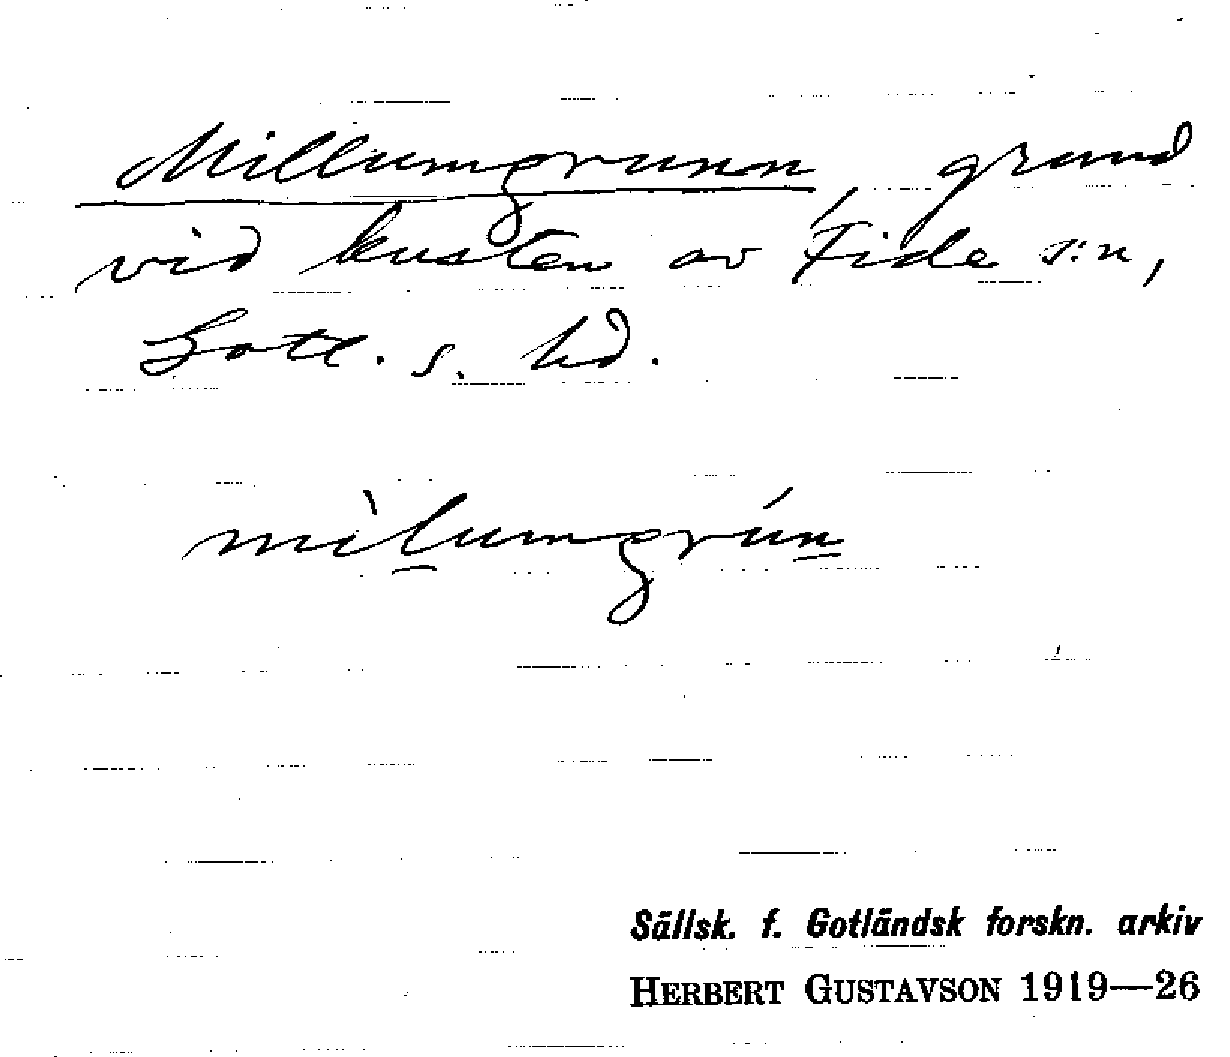 Millumgrunn, grund
vid kusten av Fide s:n,
Gotl. s. hd.
mìlumgrún
Sällsk. f. Gotländsk forskn. arkiv
HERBERT GUSTAVSON 1919—26